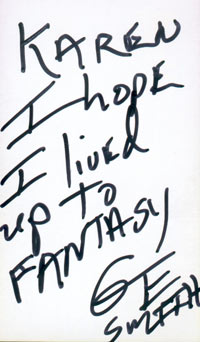 KAREN
I hope
I lived
up to
FANTASY
GE
SMITH